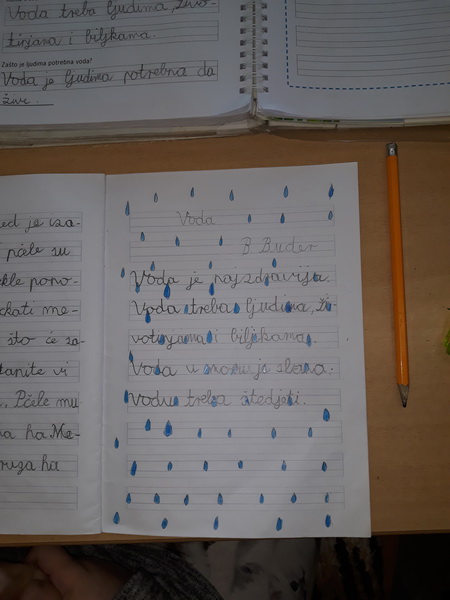 Voda treba ljudima, živo-
tinjama i biljkama.
Zašto je ljudima potrebna voda?
Voda je ljudima potrebna da
žive.
je iza-
pčele su
pono-
me-
što će za-
vi
Pčele mu
ha. Me-
ha
Voda
B. Buder
Voda je najzdravija.
Voda treba ljudima, ži
votinjama i biljkama.
Voda u moru je slana.
Vodu treba štedjeti.